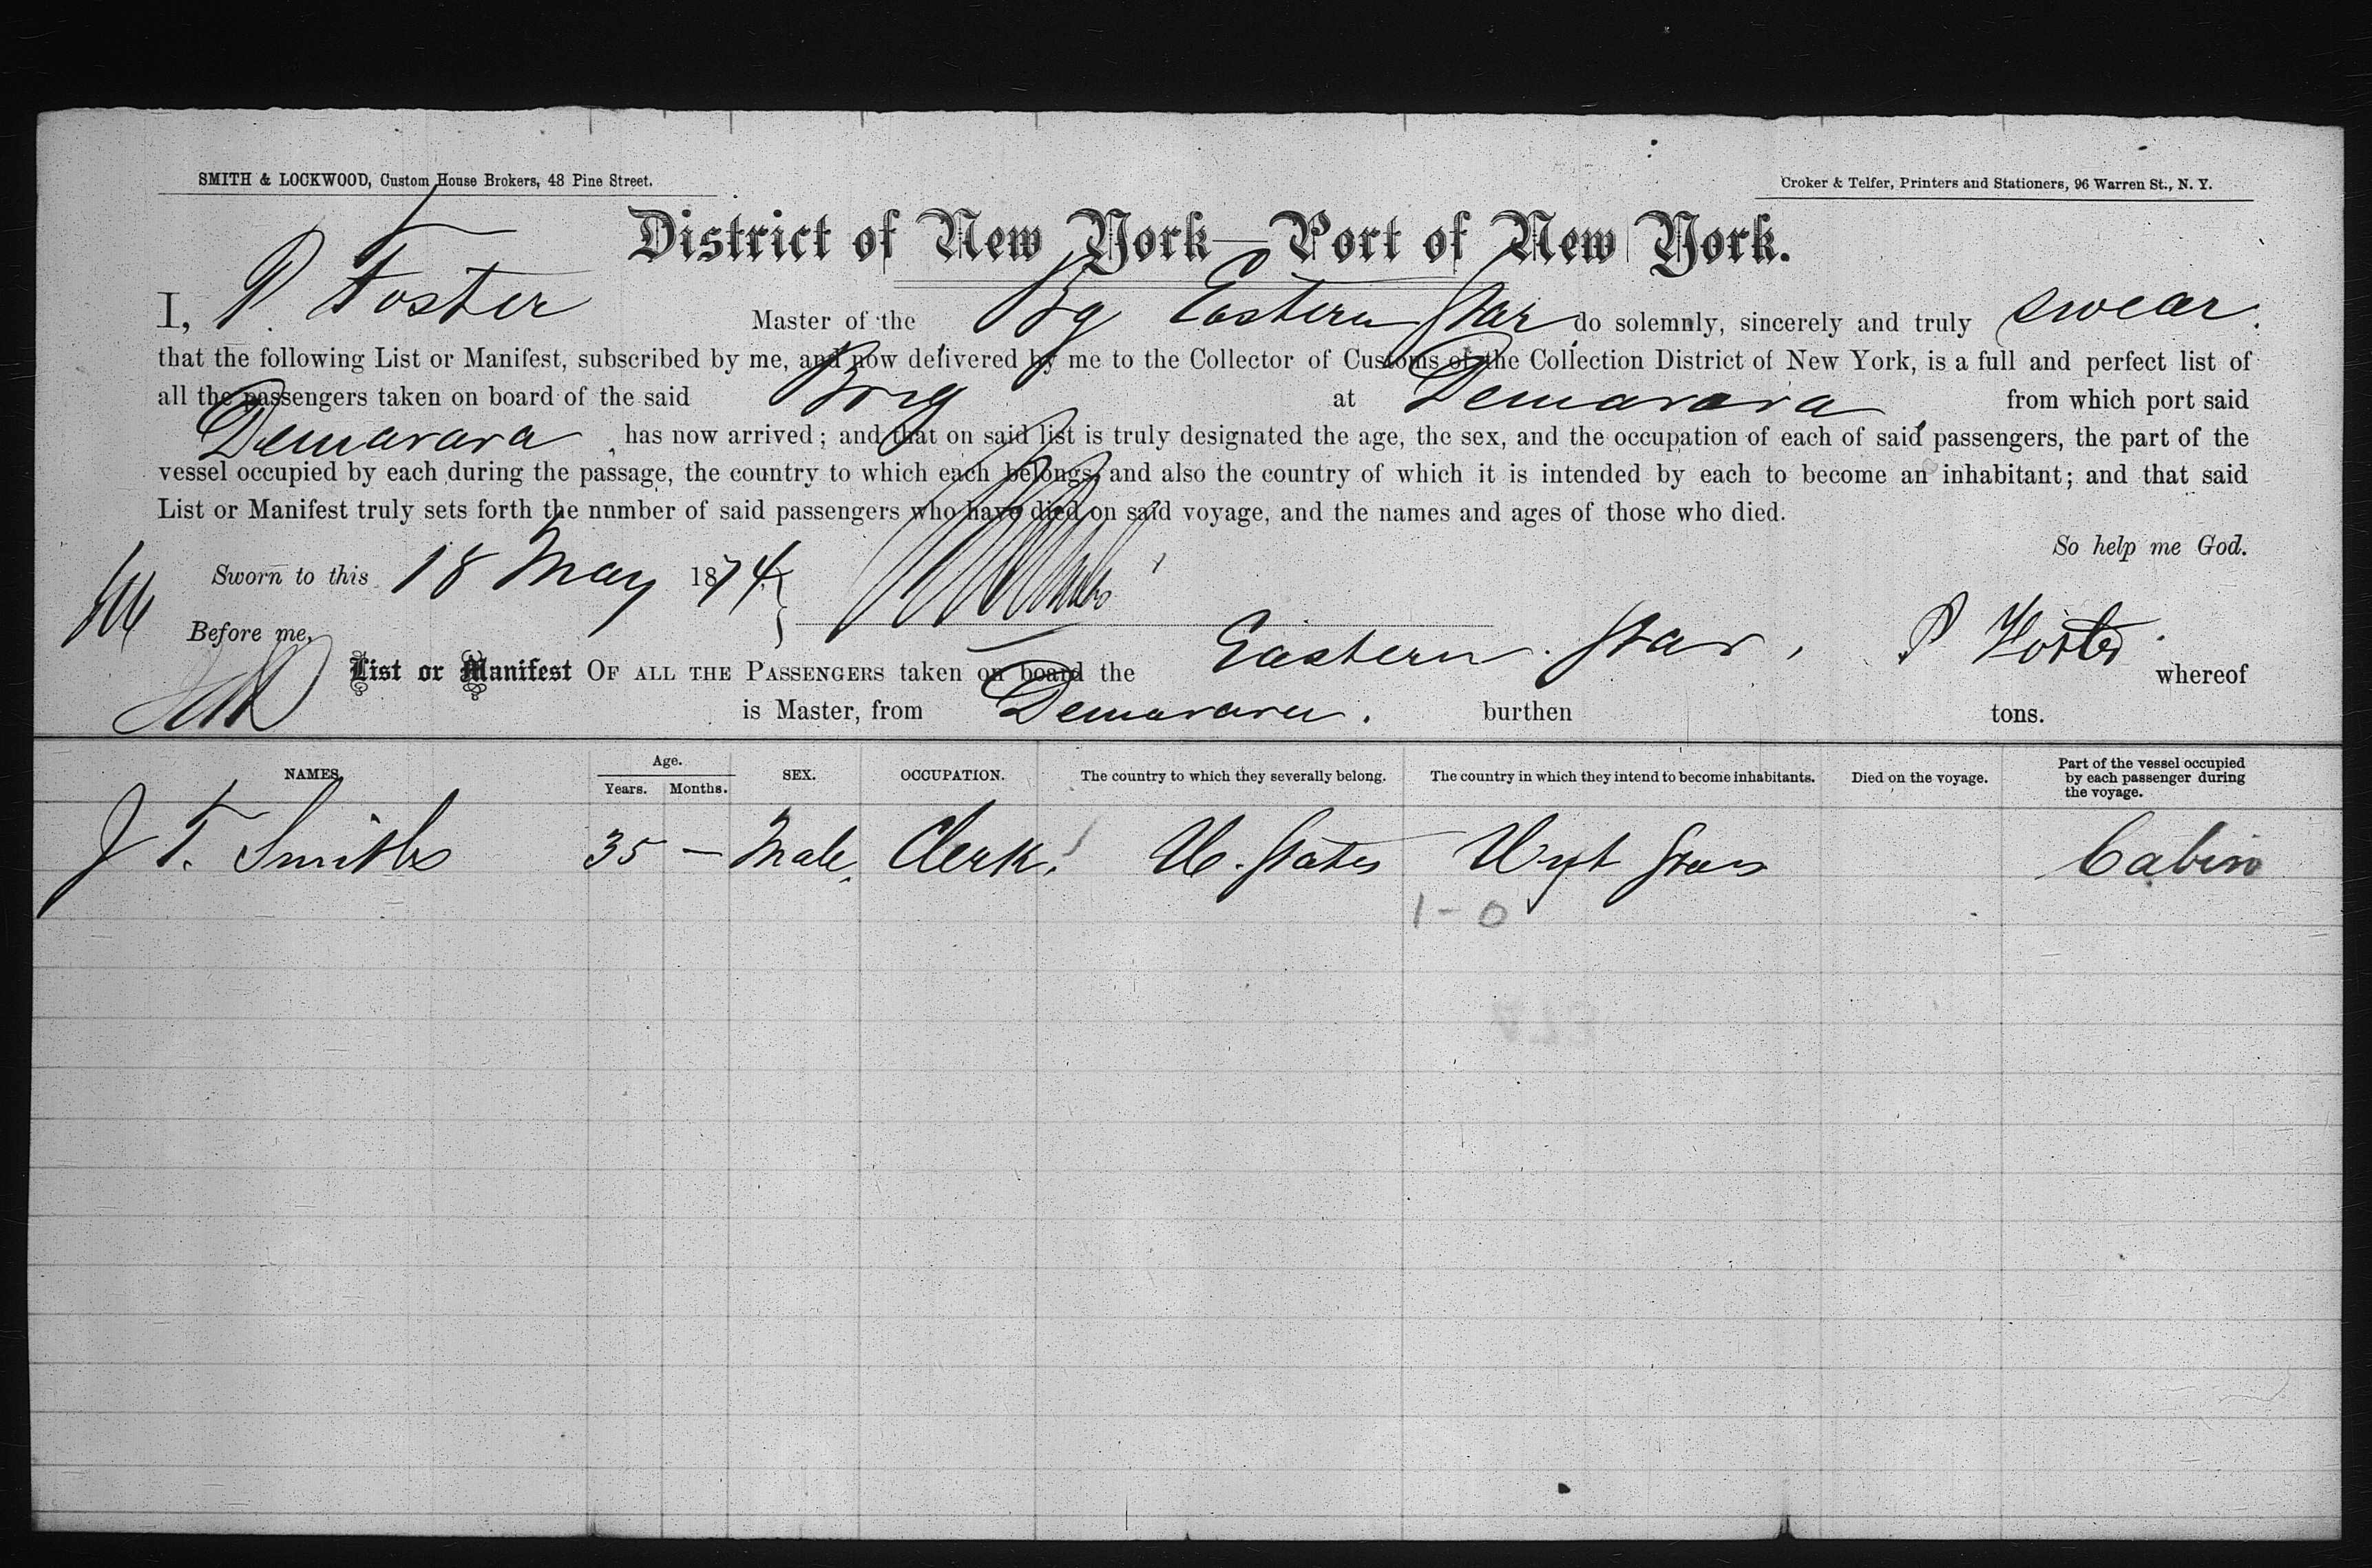 SMITH & LOCKWOOD, Custom House Brokers, 48 Pine Street.
Croker & Telfer, Printers and Stationers, 96 Warren St., N. Y.
District of New York—Port of New York.
I, P. Foster Master of the Bg Eastern Star do solemnly, sincerely and truly swear
that the following List or Manifest, subscribed by me, and now delivered by me to the Collector of Customs of the Collection District of New York, is a full and perfect list of
all the passengers taken on board of the said Brig at Demarara from which port said
Demarara has now arrived; and that on said list is truly designated the age, the sex, and the occupation of each of said passengers, the part of the
vessel occupied by each during the passage, the country to which each belongs, and also the country of which it is intended by each to become an inhabitant; and that said
List or Manifest truly sets forth the nnmber of said passengers who have died on said voyage, and the names and ages of those who died.
So help me God.
Sworn to this 18 May 1874
Before me,
List or Manifest OF ALL THE PASSENGERS taken on board the Eastern Star, P Foster whereof
is Master, from Demarara. burthen tons.
NAMES. Age. Years. Months. SEX. OCCUPATION. The country to which they severally belong. The country in which they intend to become inhabitants. Died on the voyage. Part of the vessel occupied by each passenger during the voyage.
J T. Smith 35 — Male. Clerk. U. States Cabin
1-0